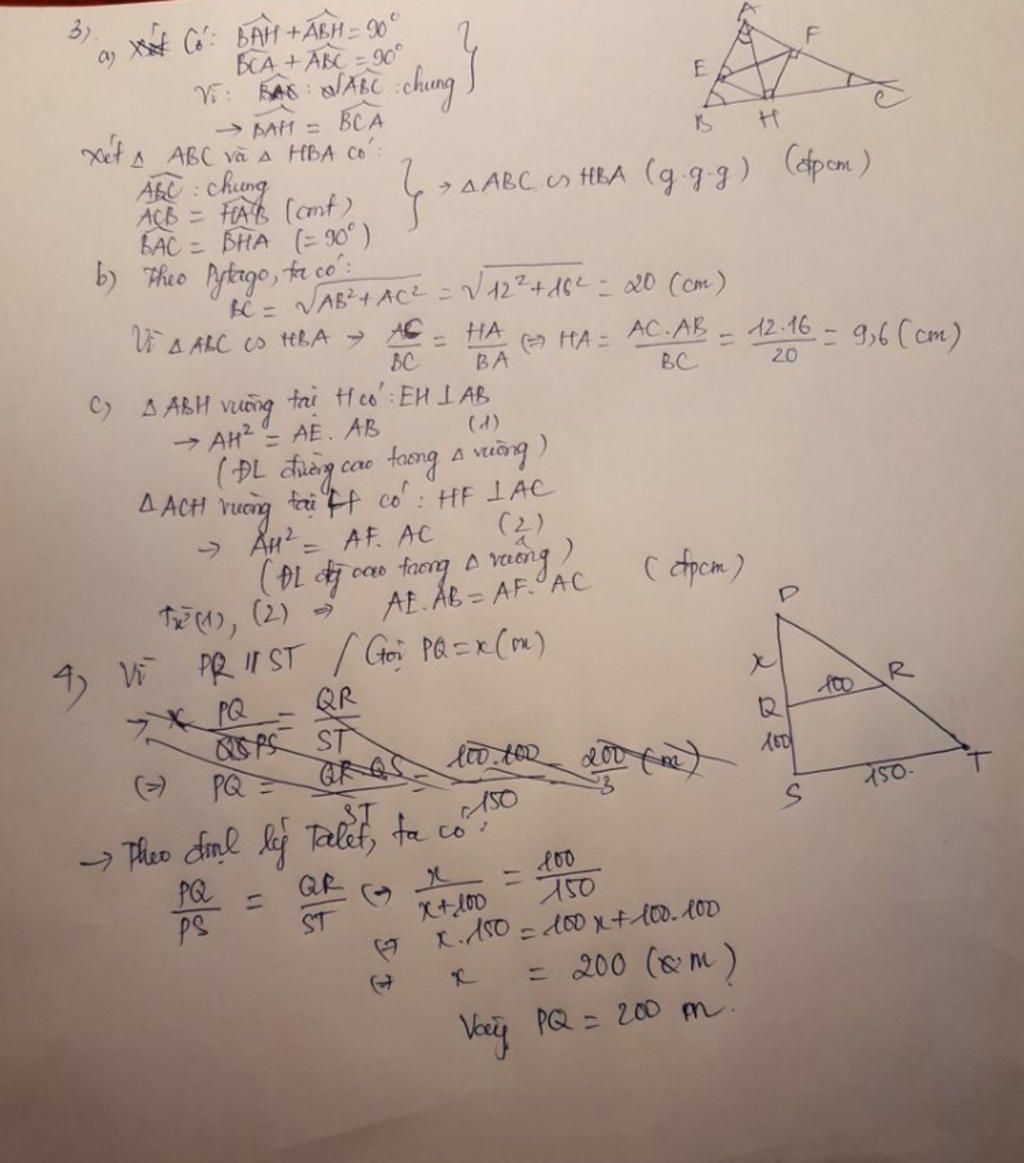 3)
a) Xét Có: BAH + ABH = 90°
BCA + ABC = 90°
Vì: ABC : chung
→ BAH = BCA
Xét △ ABC và △ HBA có:
ABC : chung
ACB = HAB (cmt)
BAC = BHA (= 90°)
→ △ ABC ∽ HBA (g.g.g) (đpcm)
b) Theo Pytago, ta có:
BC = √AB² + AC² = √12² + 16² = 20 (cm)
Vì △ ABC ∽ HBA → AC/BC = HA/BA ⇔ HA = AC.AB/BC = 12.16/20 = 9,6 (cm)
c) △ ABH vuông tại H có: EH ⊥ AB
→ AH² = AE. AB (1)
(ĐL đường cao trong △ vuông)
△ ACH vuông tại H có: HF ⊥ AC
→ AH² = AF. AC (2)
(ĐL đg cao trong △ vuông)
Từ (1), (2) ⇒ AE.AB = AF. AC (đpcm)
A
F
E
B
H
C
4) Vì PQ // ST / Gọi PQ = x (m)
→ x PQ/QS PS = QR/ST
⇔ PQ = QR.QS/ST = 100.100/150 = 200/3 (m)
→ Theo định lý Talet, ta có:
PQ/PS = QR/ST ⇔ x/x+100 = 100/150
⇔ x.150 = 100x + 100.100
⇔ x = 200 (m)
Vậy PQ = 200 m.
P
x
R
100
Q
100
T
S
150.